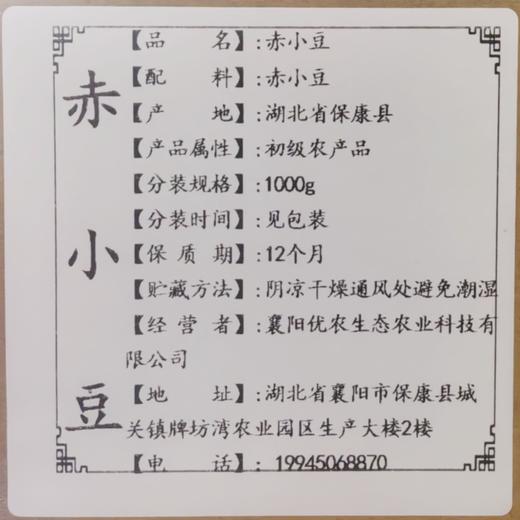 赤小豆
【品名】:赤小豆
【配料】:赤小豆
【产地】:湖北省保康县
【产品属性】:初级农产品
【分装规格】:1000g
【分装时间】:见包装
【保质期】:12个月
【贮藏方法】:阴凉干燥通风处避免潮湿
【经营者】:襄阳优农生态农业科技有
限公司
【地址】:湖北省襄阳市保康县城
关镇牌坊湾农业园区生产大楼2楼
【电话】: 19945068870